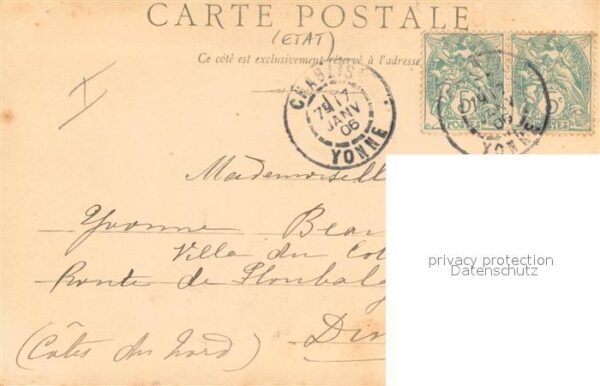 CARTE POSTALE
(ETAT)
Ce côté est exclusivement réservé à l'adresse
CHABLIS
7E 17
JANV
06
YONNE
5c
POSTES
YONNE
Mademoiselle
Yvonne Beau
Villa du Col
Route de Ploubalay
Din
(Côtes du Nord)
privacy protection
Datenschutz